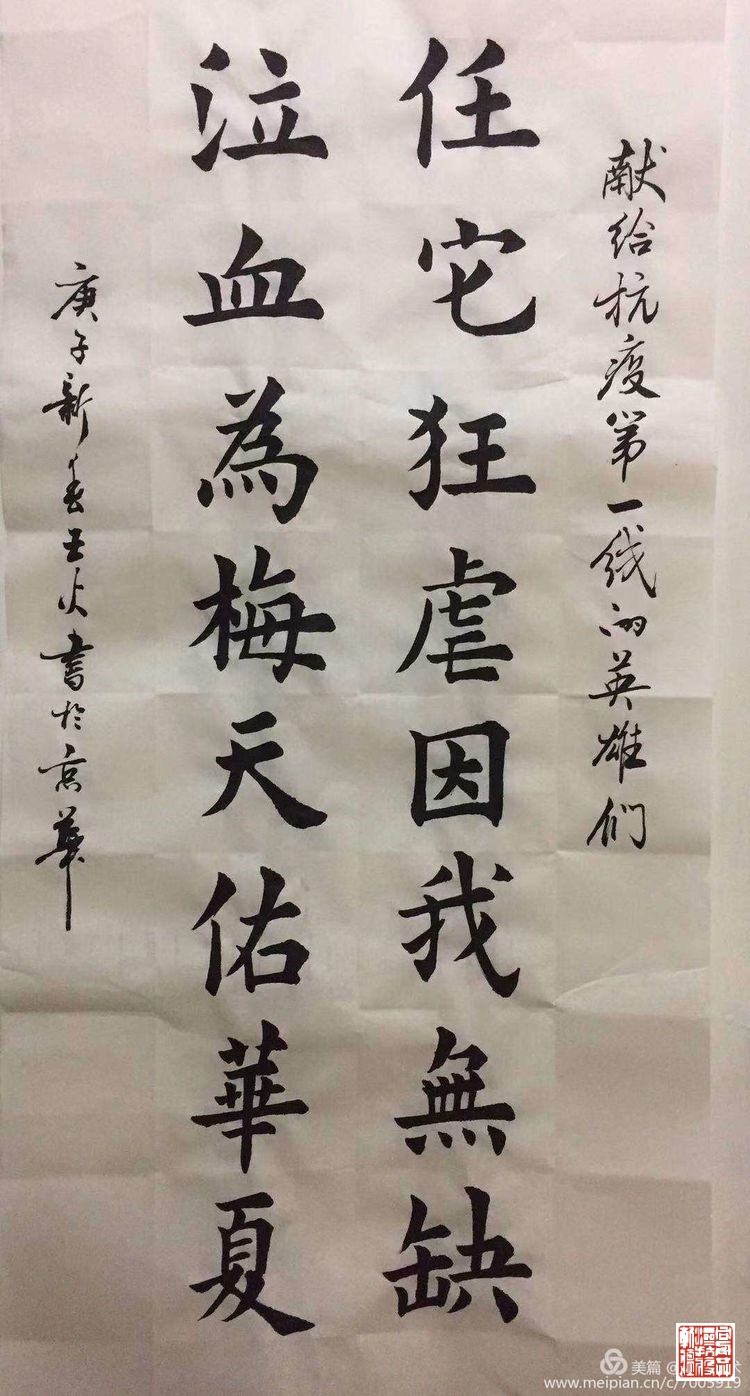 献给抗疫第一线的英雄们
任它狂虐因我無缺
泣血為梅天佑華夏
庚子新春王火書於京華
美篇
www.meipian.cn/c/7003919